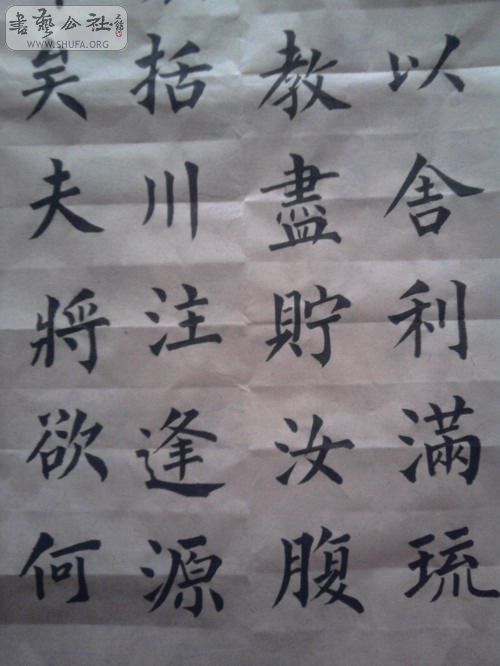 以舍利滿琉
教盡貯汝腹
括川注逢源
矣夫將欲何
書藝公社
WWW.SHUFA.ORG